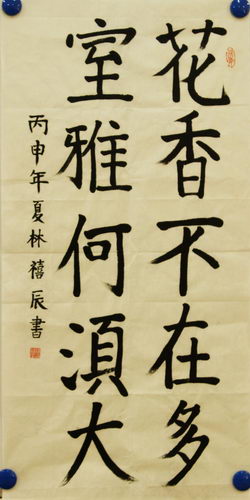 花香不在多
室雅何須大
丙申年夏林禧辰書